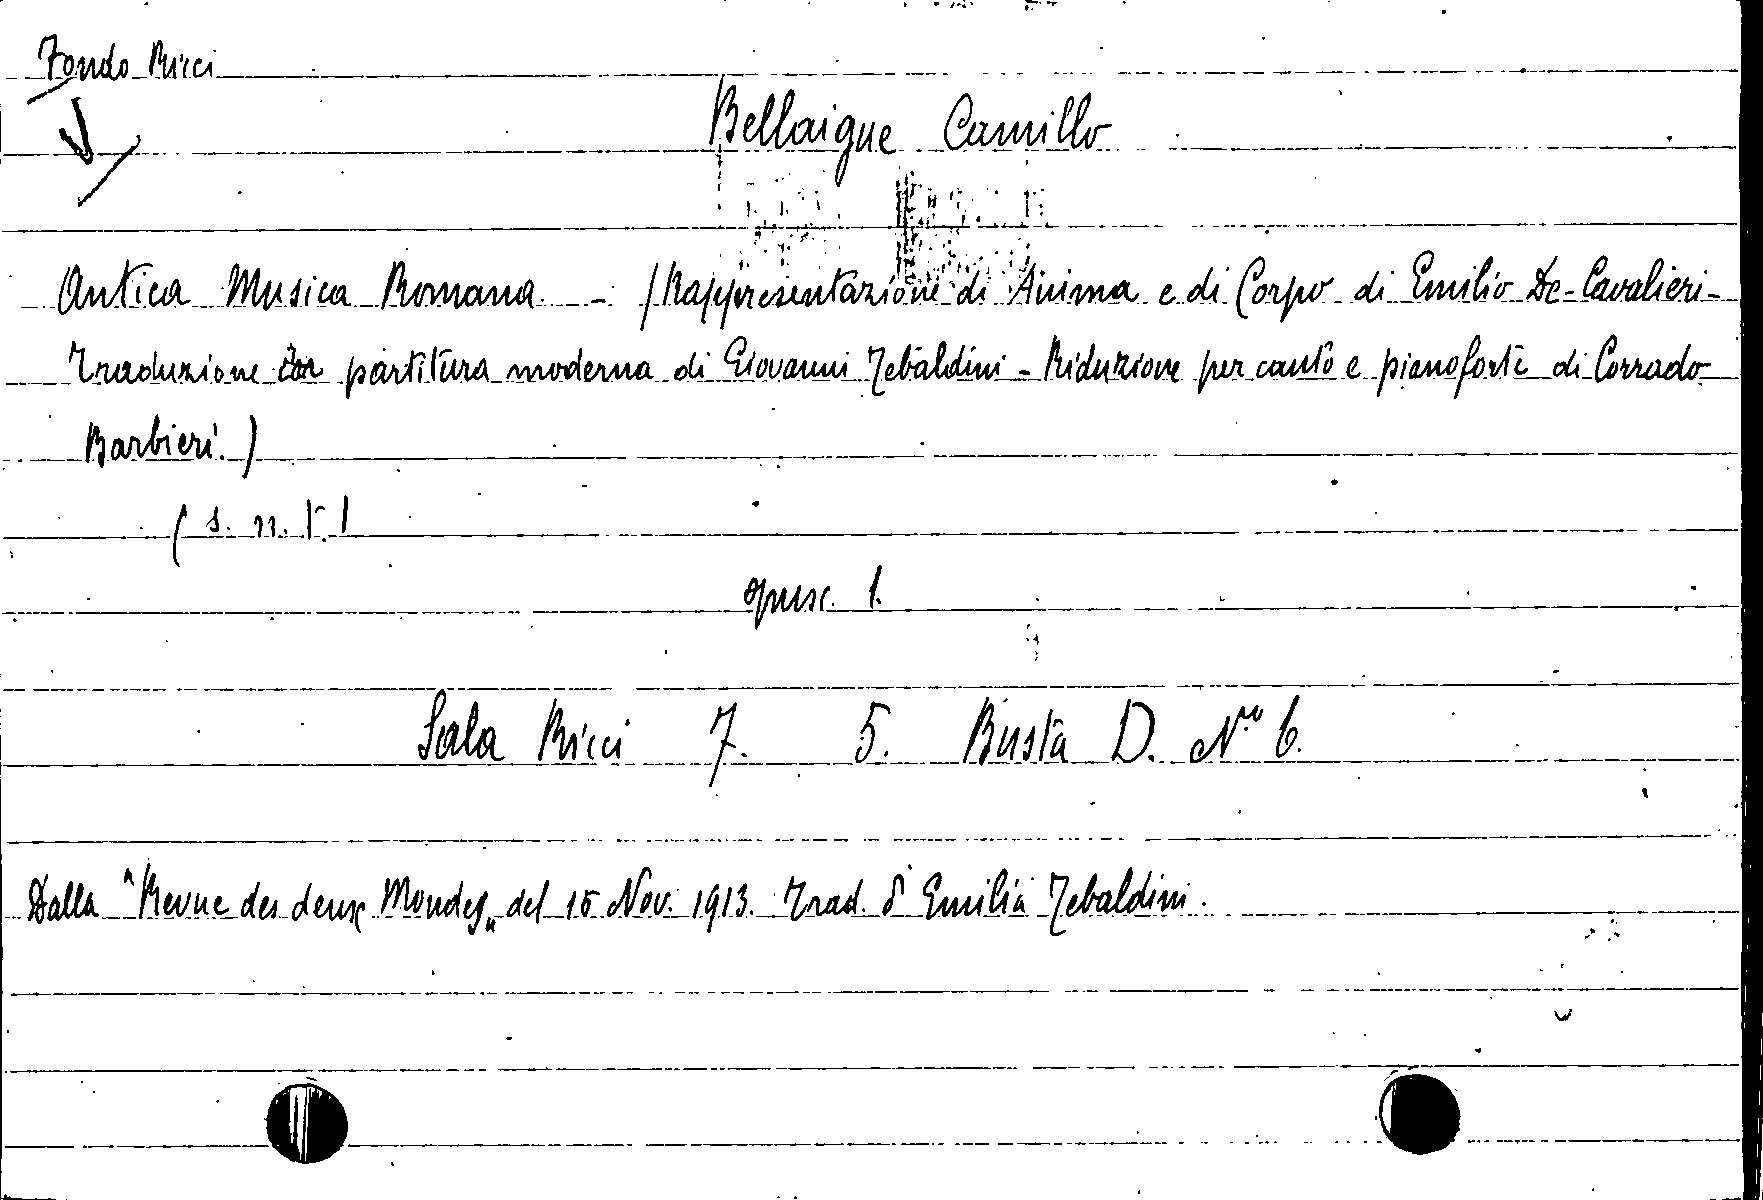 Fondo Ricci
Bellaigue Camillo
Antica Musica Romana - (Rappresentazione di Anima e di Corpo di Emilio De-Cavalieri-
Traduzione in partitura moderna di Giovanni Tebaldini - Riduzione per canto e pianoforte di Corrado
Barbieri.)
(s. n. t.)
opusc. 1.
Sala Ricci 7. 5. Busta D. Nro 6.
Dalla "Revue des deux Mondes" del 15 Nov. 1913. Trad. d' Emilia Tebaldini.